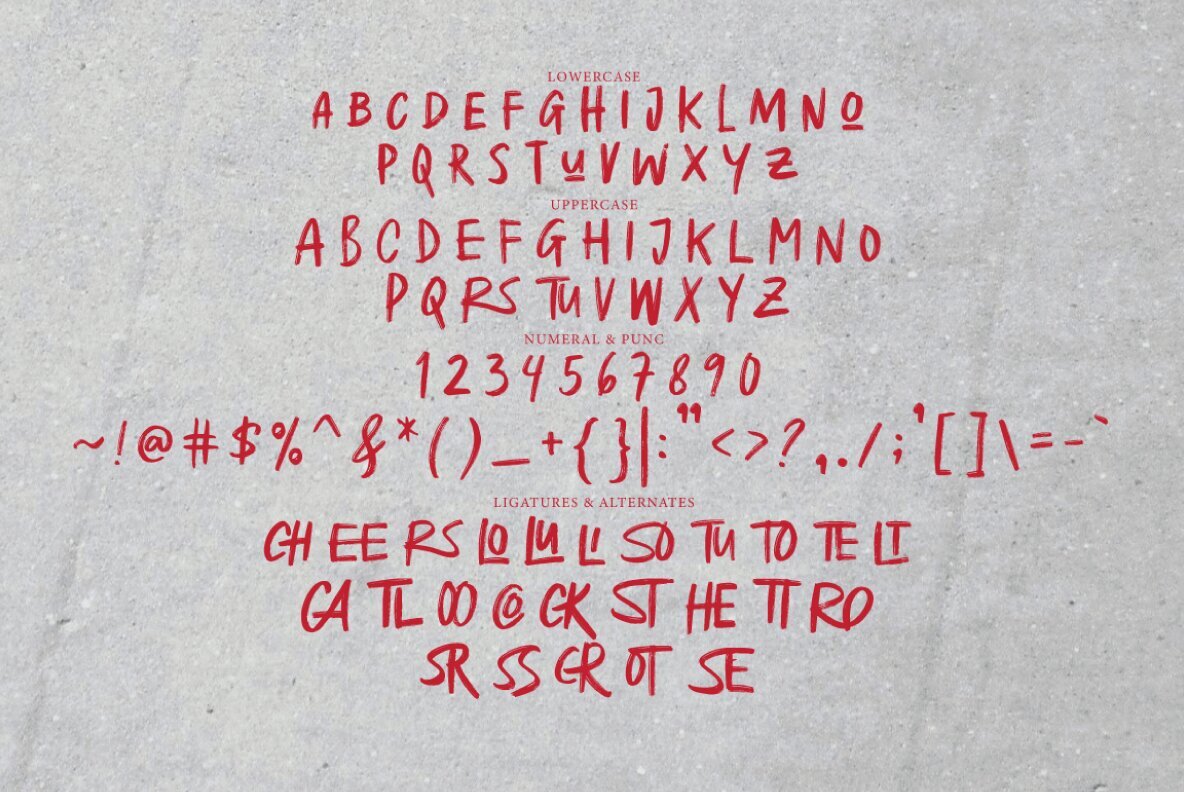 LOWERCASE
A B C D E F G H I J K L M N O
P Q R S T U V W X Y Z
UPPERCASE
A B C D E F G H I J K L M N O
P Q R S T U V W X Y Z
NUMERAL & PUNC
1 2 3 4 5 6 7 8 9 0
~ ! @ # $ % ^ & * ( ) _ + { } | : " < > ? , . / ; ' [ ] \ = - `
LIGATURES & ALTERNATES
CH EE RS LO LU LI SO TU TO TE LT
GA TL OO CO CK ST HE TT RO
SR SS CR OT SE